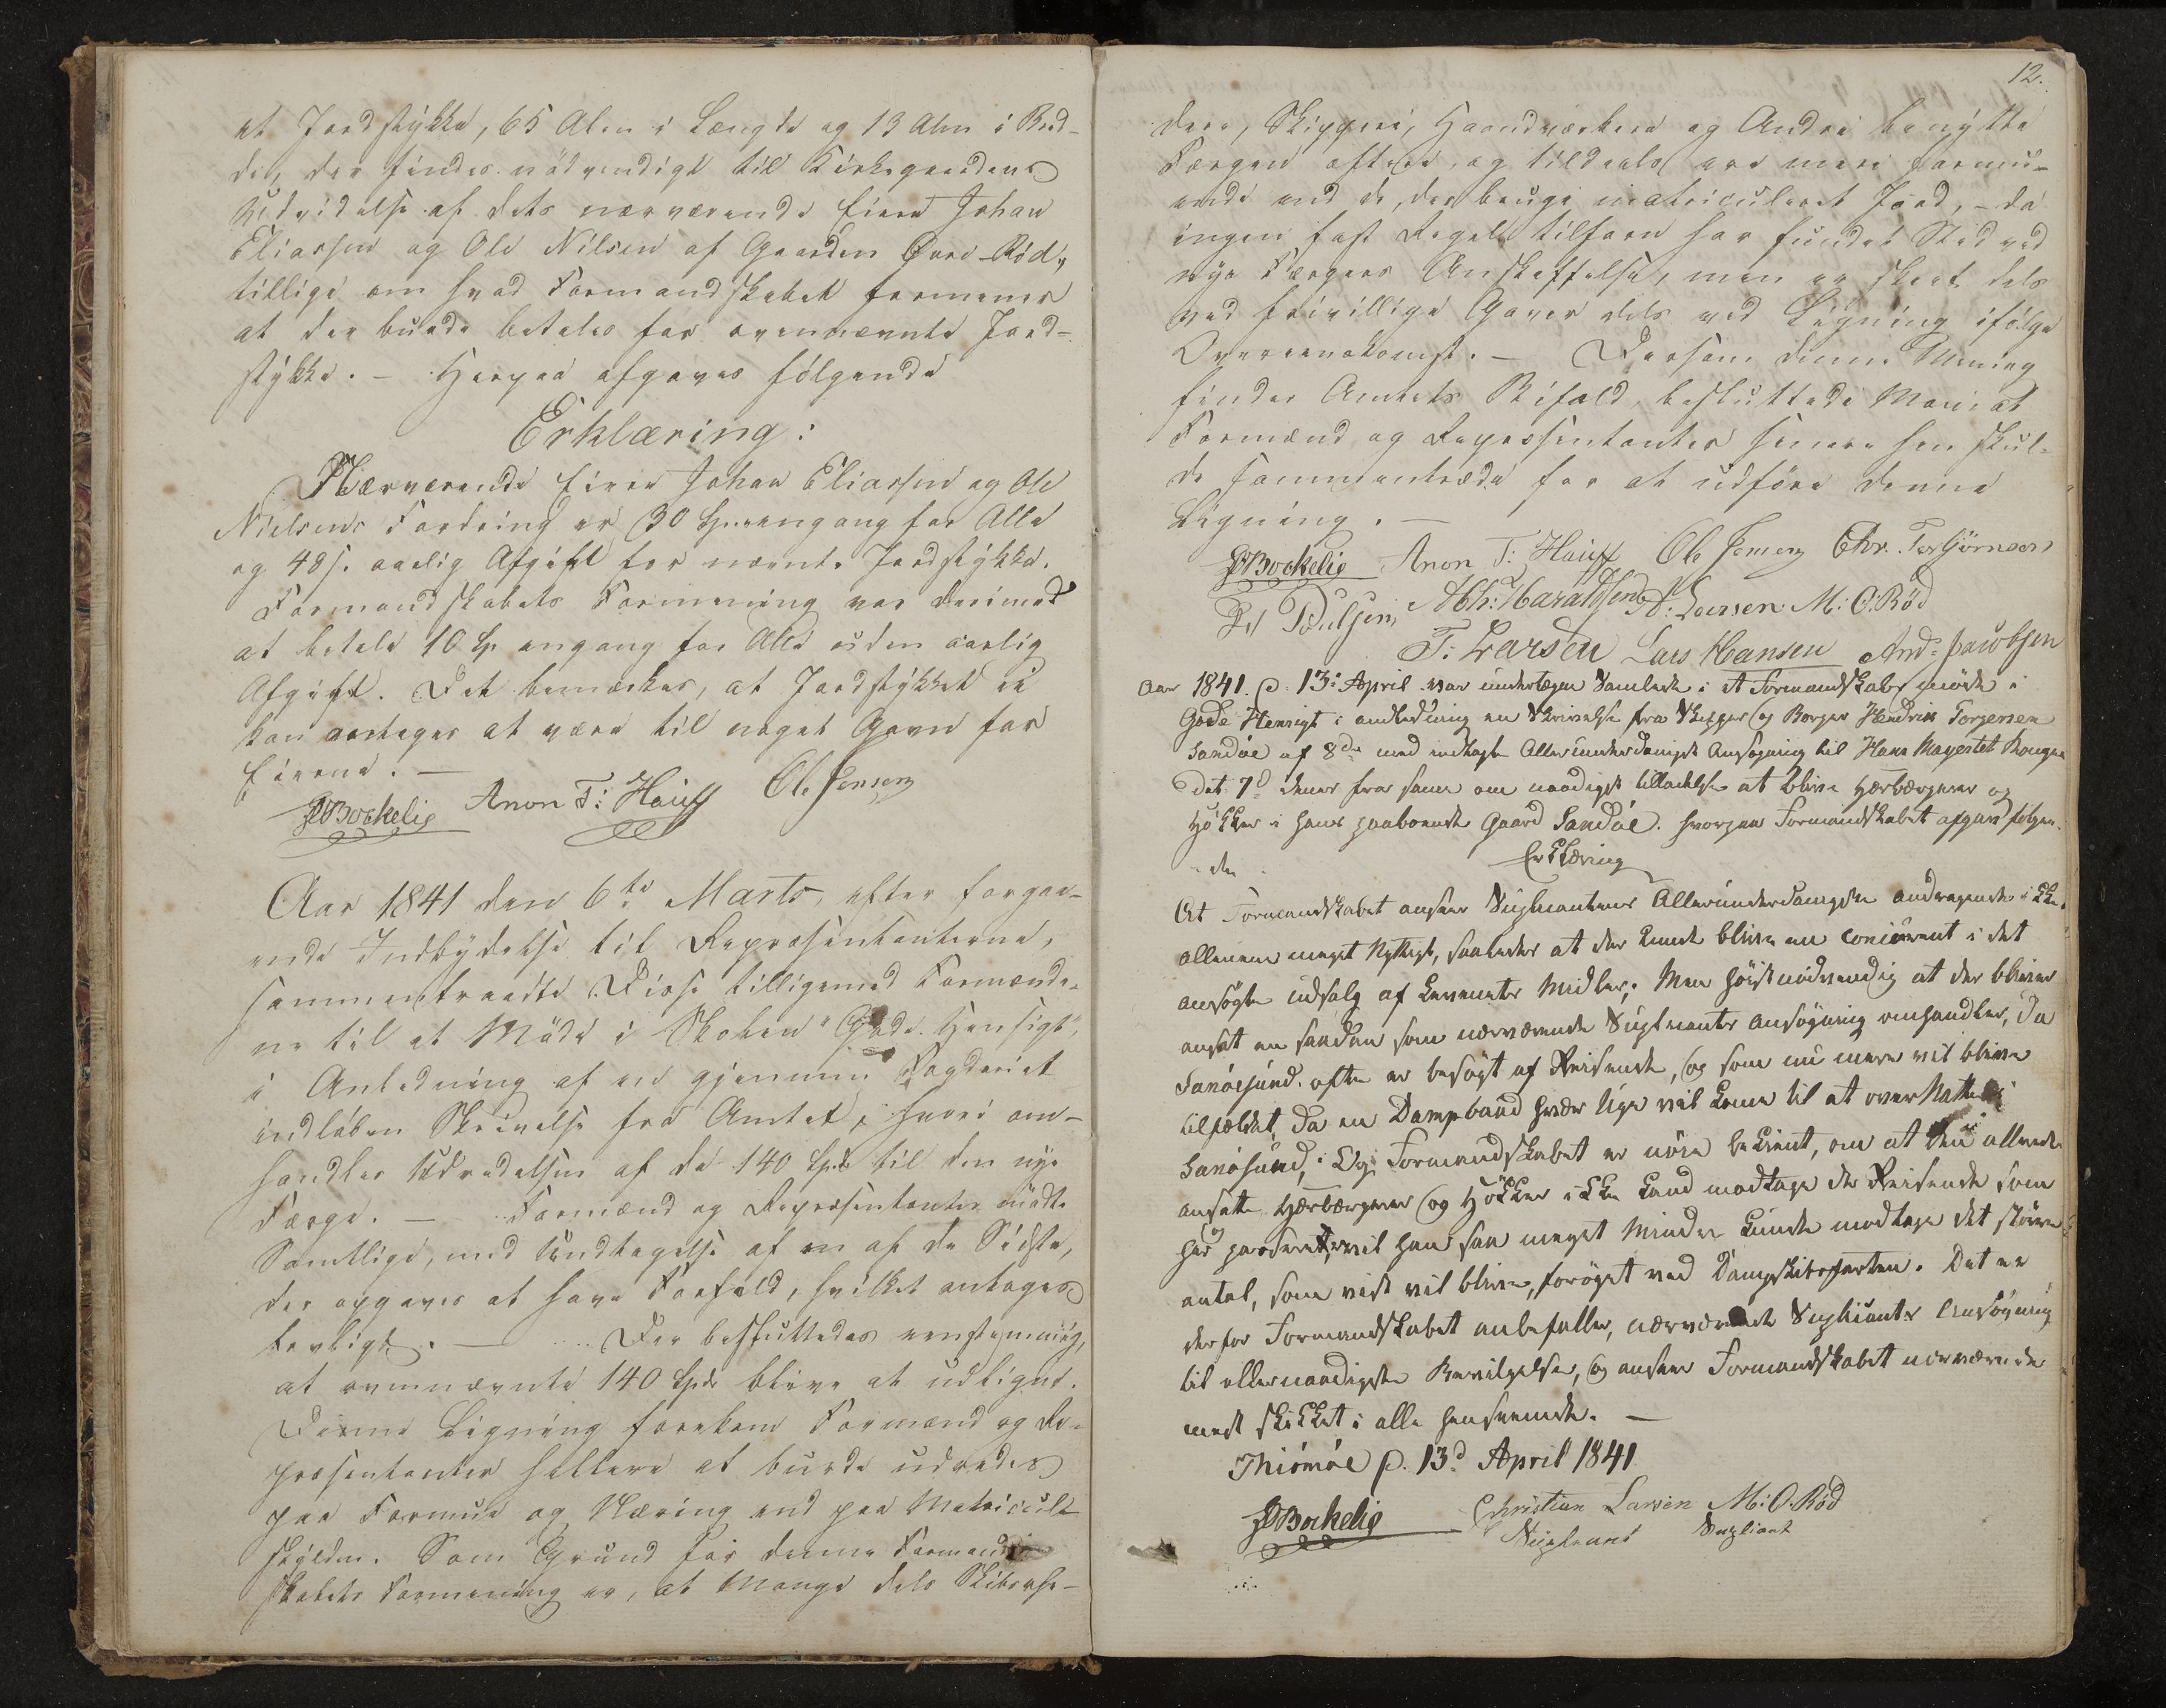 et Jordstykke, 65 Alen i Længde og 13 Alen i Bred-
de, der findes nödvendigt til Kirkegaardens
Udvidelse af dets nærværende Eiere Johan
Eliassen og Ole Nilsen af Gaarden Övre-Röd,
tillige om hvad Formandskabet formener
at der burde betales for ovennævnte Jord-
stykke. – Herpaa afgaves fölgende
Erklæring:
Nærværende Eiere Johan Eliassen og Ole
Nielsens Fordring er 30 Sp. engang for Alle
og 48 s. aarlig Afgift for nævnte Jordstykke.
Formandskabets Formening var derimod
at betale 10 Sp engang for Alle uden aarlig
Afgift. Det bemærkes, at Jordstykket ei
kan antages at være til noget Gavn for
Eierne. –
Bockelie Anon T: Hauff Ole Jensen
Aar 1841 den 6te Marts, efter forgaa-
ende Indbydelse til Repræsentanterne,
sammentraadte Disse tilligemed Formænde-
ne til et Möde i Skolen "Gode Hensigt",
i Anledning af en gjennem Fogderiet
indlöben Skrivelse fra Amtet, hvori om-
handles Udredelsen af de 140 Spd. til den nye
Færge. – Formænd og Repræsentanter mödte
Samtlige, med Undtagelse af en af de Sidste,
der opgaves at have Forfald, hvilket antages
lovligt. – Der besluttedes eenstemmig,
at ovennævnte 140 Spdr blive at udligne.
Denne Ligning forekom Formænd og Re-
præsentanter hellere at burde udredes
paa Formue og Næring end paa Matricul-
skylden. Som Grund for denne Formand-
skabets Formening er, at Mange dels Skibsrhe-
12.
dere, Skippere, Haandværkere og Andre benytte
Færgen oftere, og tildeels ere mere formu-
ende end de, der bruge matriculeret Jord, – da
ingen fast Regel tilforn har fundet Sted ved
nye Færgers Anskaffelse, men er skeet dels
ved frivillige Gaver dels ved Ligning ifölge
Overeenskomst. – Dersom denne Mening
finder Amtets Bifald, besluttede Man at
Formænd og Repræsentanter senere hen skul-
de sammentræde for at udföre denne
Ligning. –
Bockelie Anon T: Hauff Ole Jensen Chr. Torbjörnsen
Poulsen Abh: Haraldsen A: Larsen M: O: Röd
T: Larsen Lars Hansen And: Jacobsen
Aar 1841. d. 13d April var undertegne Samlede i et Formandskabs möde i
Gode Hensigt i andledning en Skrivelse fra Skipper og Borger Hendrik Torgersen
Sandöe af 8de med indlagte Allerunderdanigst Ansögning til Hans Mayestet Kongen
Dat. 7d denes fra samme om naadigst tilladelse at blive Herbærgerer og
Hökker i hans paaboende Gaard Sandöe. hvorpaa Formandskabet afgav fölgen-
de
Erklæring
At Formandskabet anseer Suplicantens Allerunderdanigste andragende ikke
allenene meget Nyttigt, saaledes at der kunde blive en Concurent i det
ansögte udsalg af Levenets Midler; Men höist nödvendig at der bliver
ansat en saadan som nærværende Suplicants ansögning omhandler, da
Sanöesund ofte er besögt af Reisende, og som nu mere vil blive
tilfældet, da en Dampbaad hver Uge vil kome til at over Natte i
Sanösund, Og Formandskabet er nöie bekient, om at den allerede
ansatte Herbærgerer og Hökker ikke kand modtage de Reisende som
her passerer, vil han saa meget Mindre kunde modtage det större
antal, som vist vil blive, foröget ved Dampskibsfarten. Det er
derfor Formandskabet anbefaller, nærværende Supliants Ansögning
til allernaadigste Bevilgelse, og anseer Formandskabet nærværende
mest skikket i alle henseende. –
Thiömöe d. 13d April 1841
Bockelie Christian Larsen M: O. Röd
Supleant Supliant